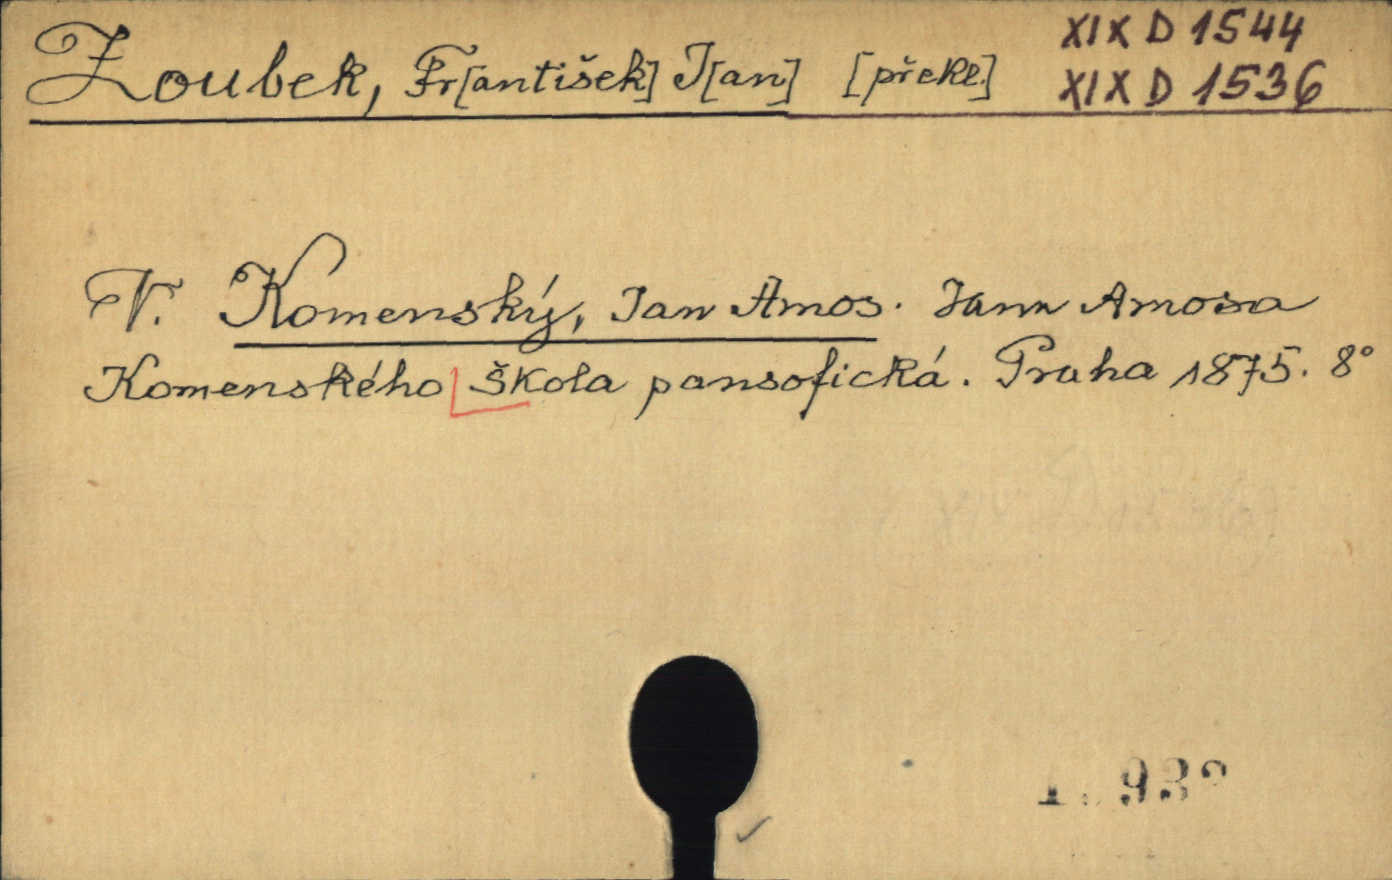 XIX D 1544
Zoubek, Fr[antišek] J[an] [překl.] XIX D 1536
V. Komenský, Jan Amos. Jana Amosa
Komenského Škola pansofická. Praha 1875. 8°